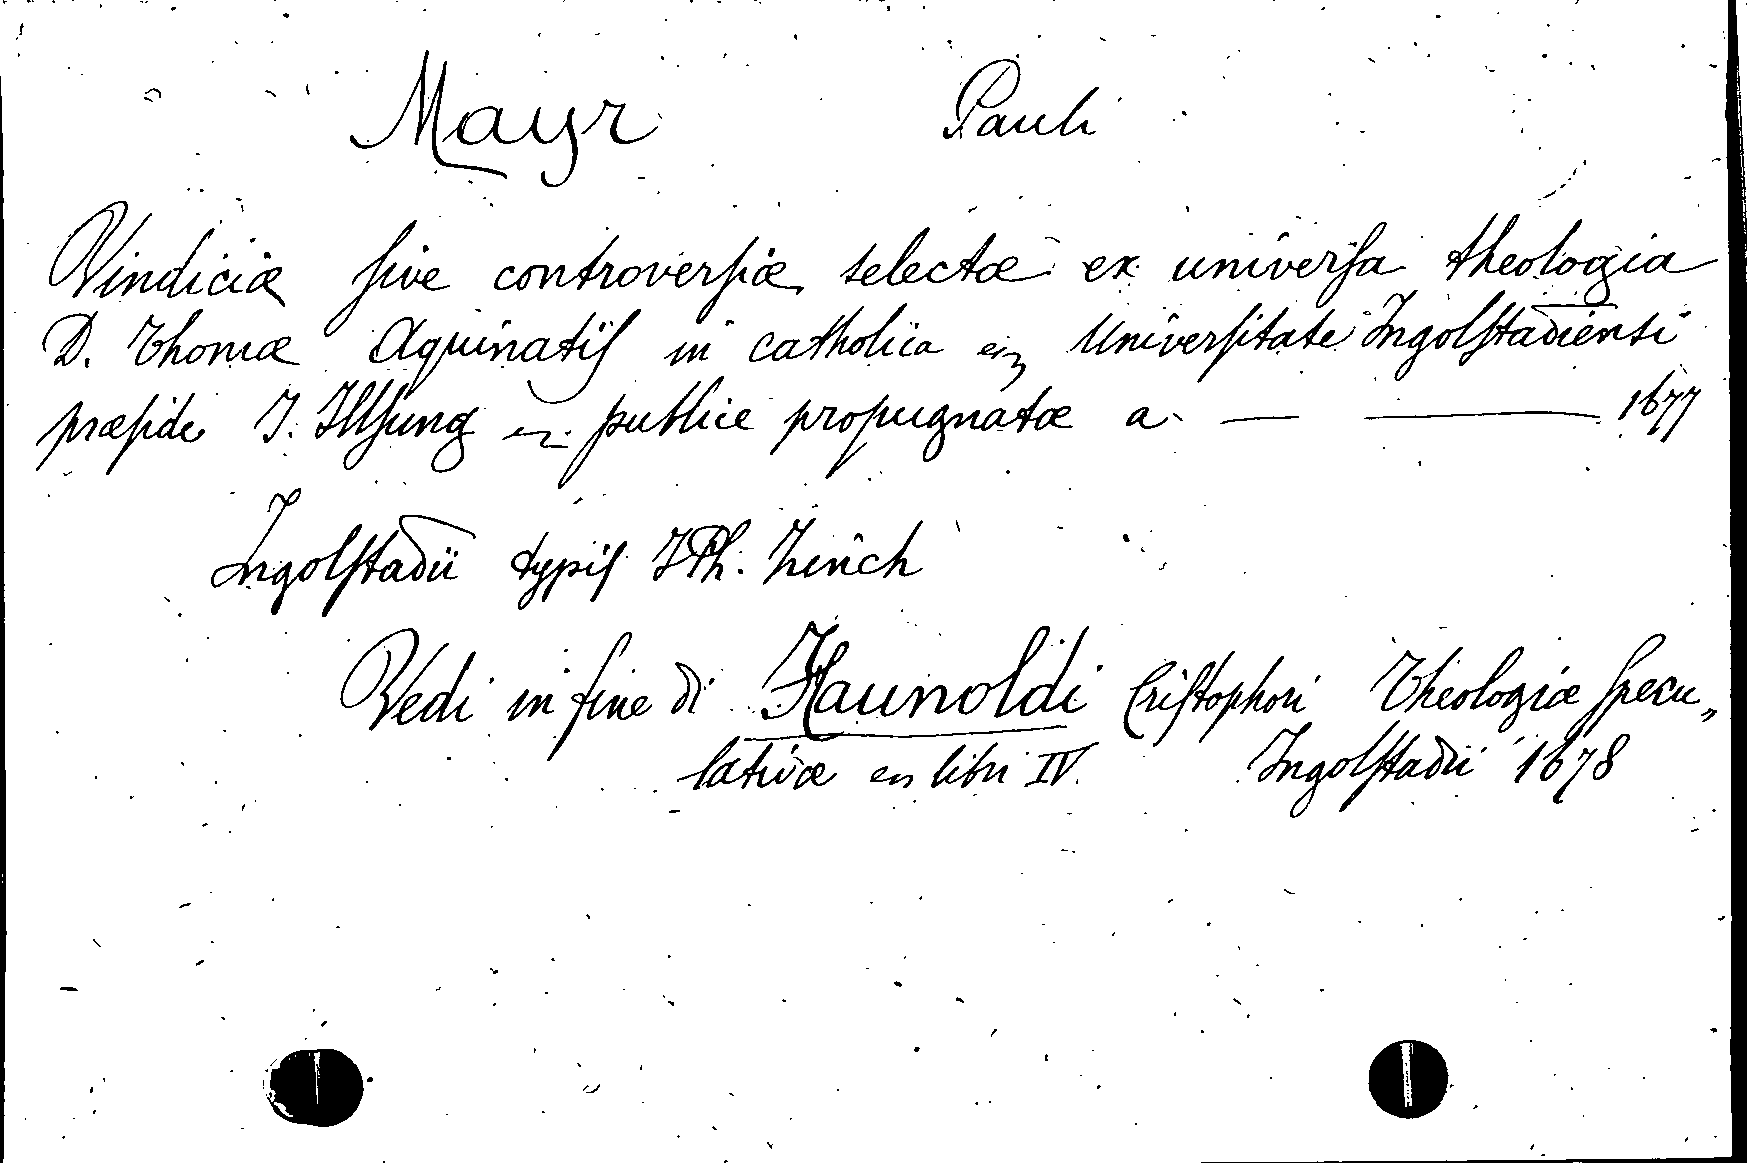 Mayr Pauli
Vindiciæ sive controversiæ selectæ ex universa theologia
D. Thomæ Aquinatis in catholica Universitate Ingolstadiensi
præside J. Illsung publice propugnatæ a — — 1677
Ingolstadii typis JPh. Zinch
Vedi in fine di Haunoldi Cristophori Theologiæ specu„
lativæ libri IV. Ingolstadii 1678